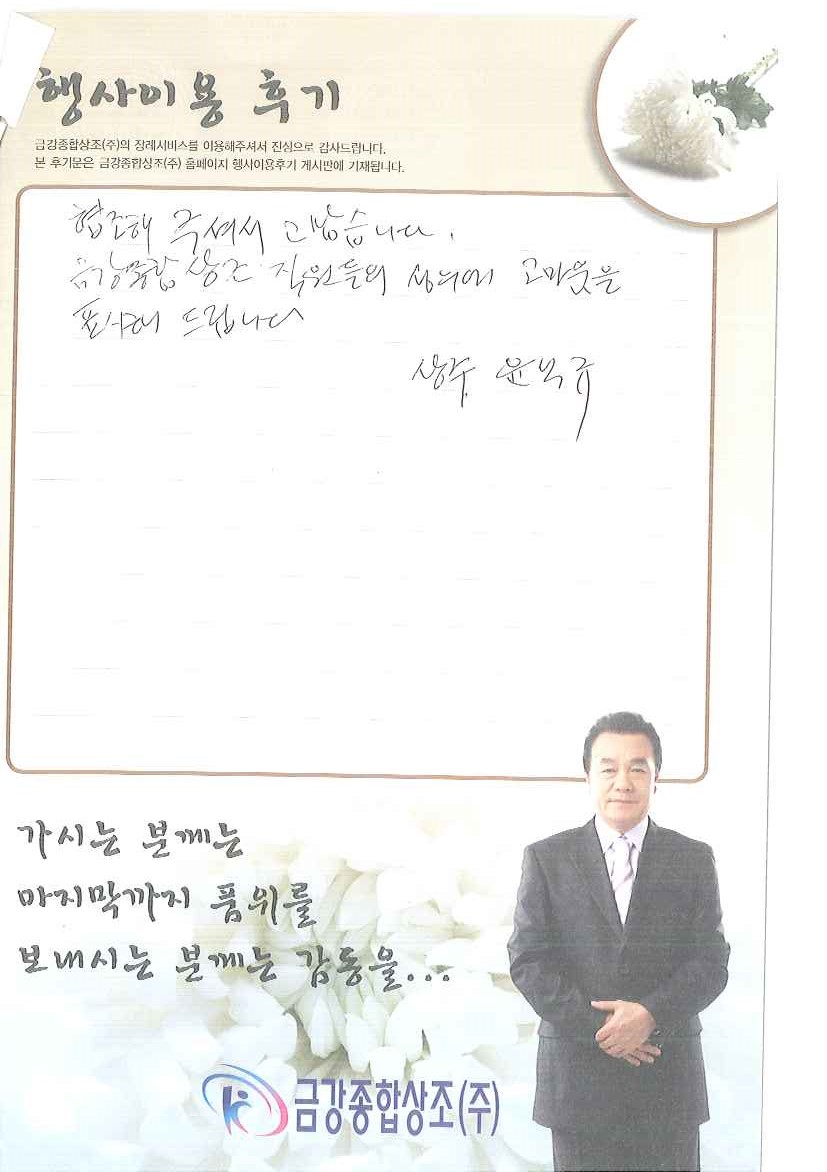 행사이용 후기
금강종합상조(주)의 장례서비스를 이용해주셔서 진심으로 감사드립니다.
본 후기문은 금강종합상조(주) 홈페이지 행사이용후기 게시판에 기재됩니다.
협조해 주셔서 고맙습니다.
금강종합상조 직원들의 성의에 고마웃을
표시해 드립니다
상주 윤
가시는 분께는
마지막까지 품위를
보내시는 분께는 감동을...
금강종합상조(주)